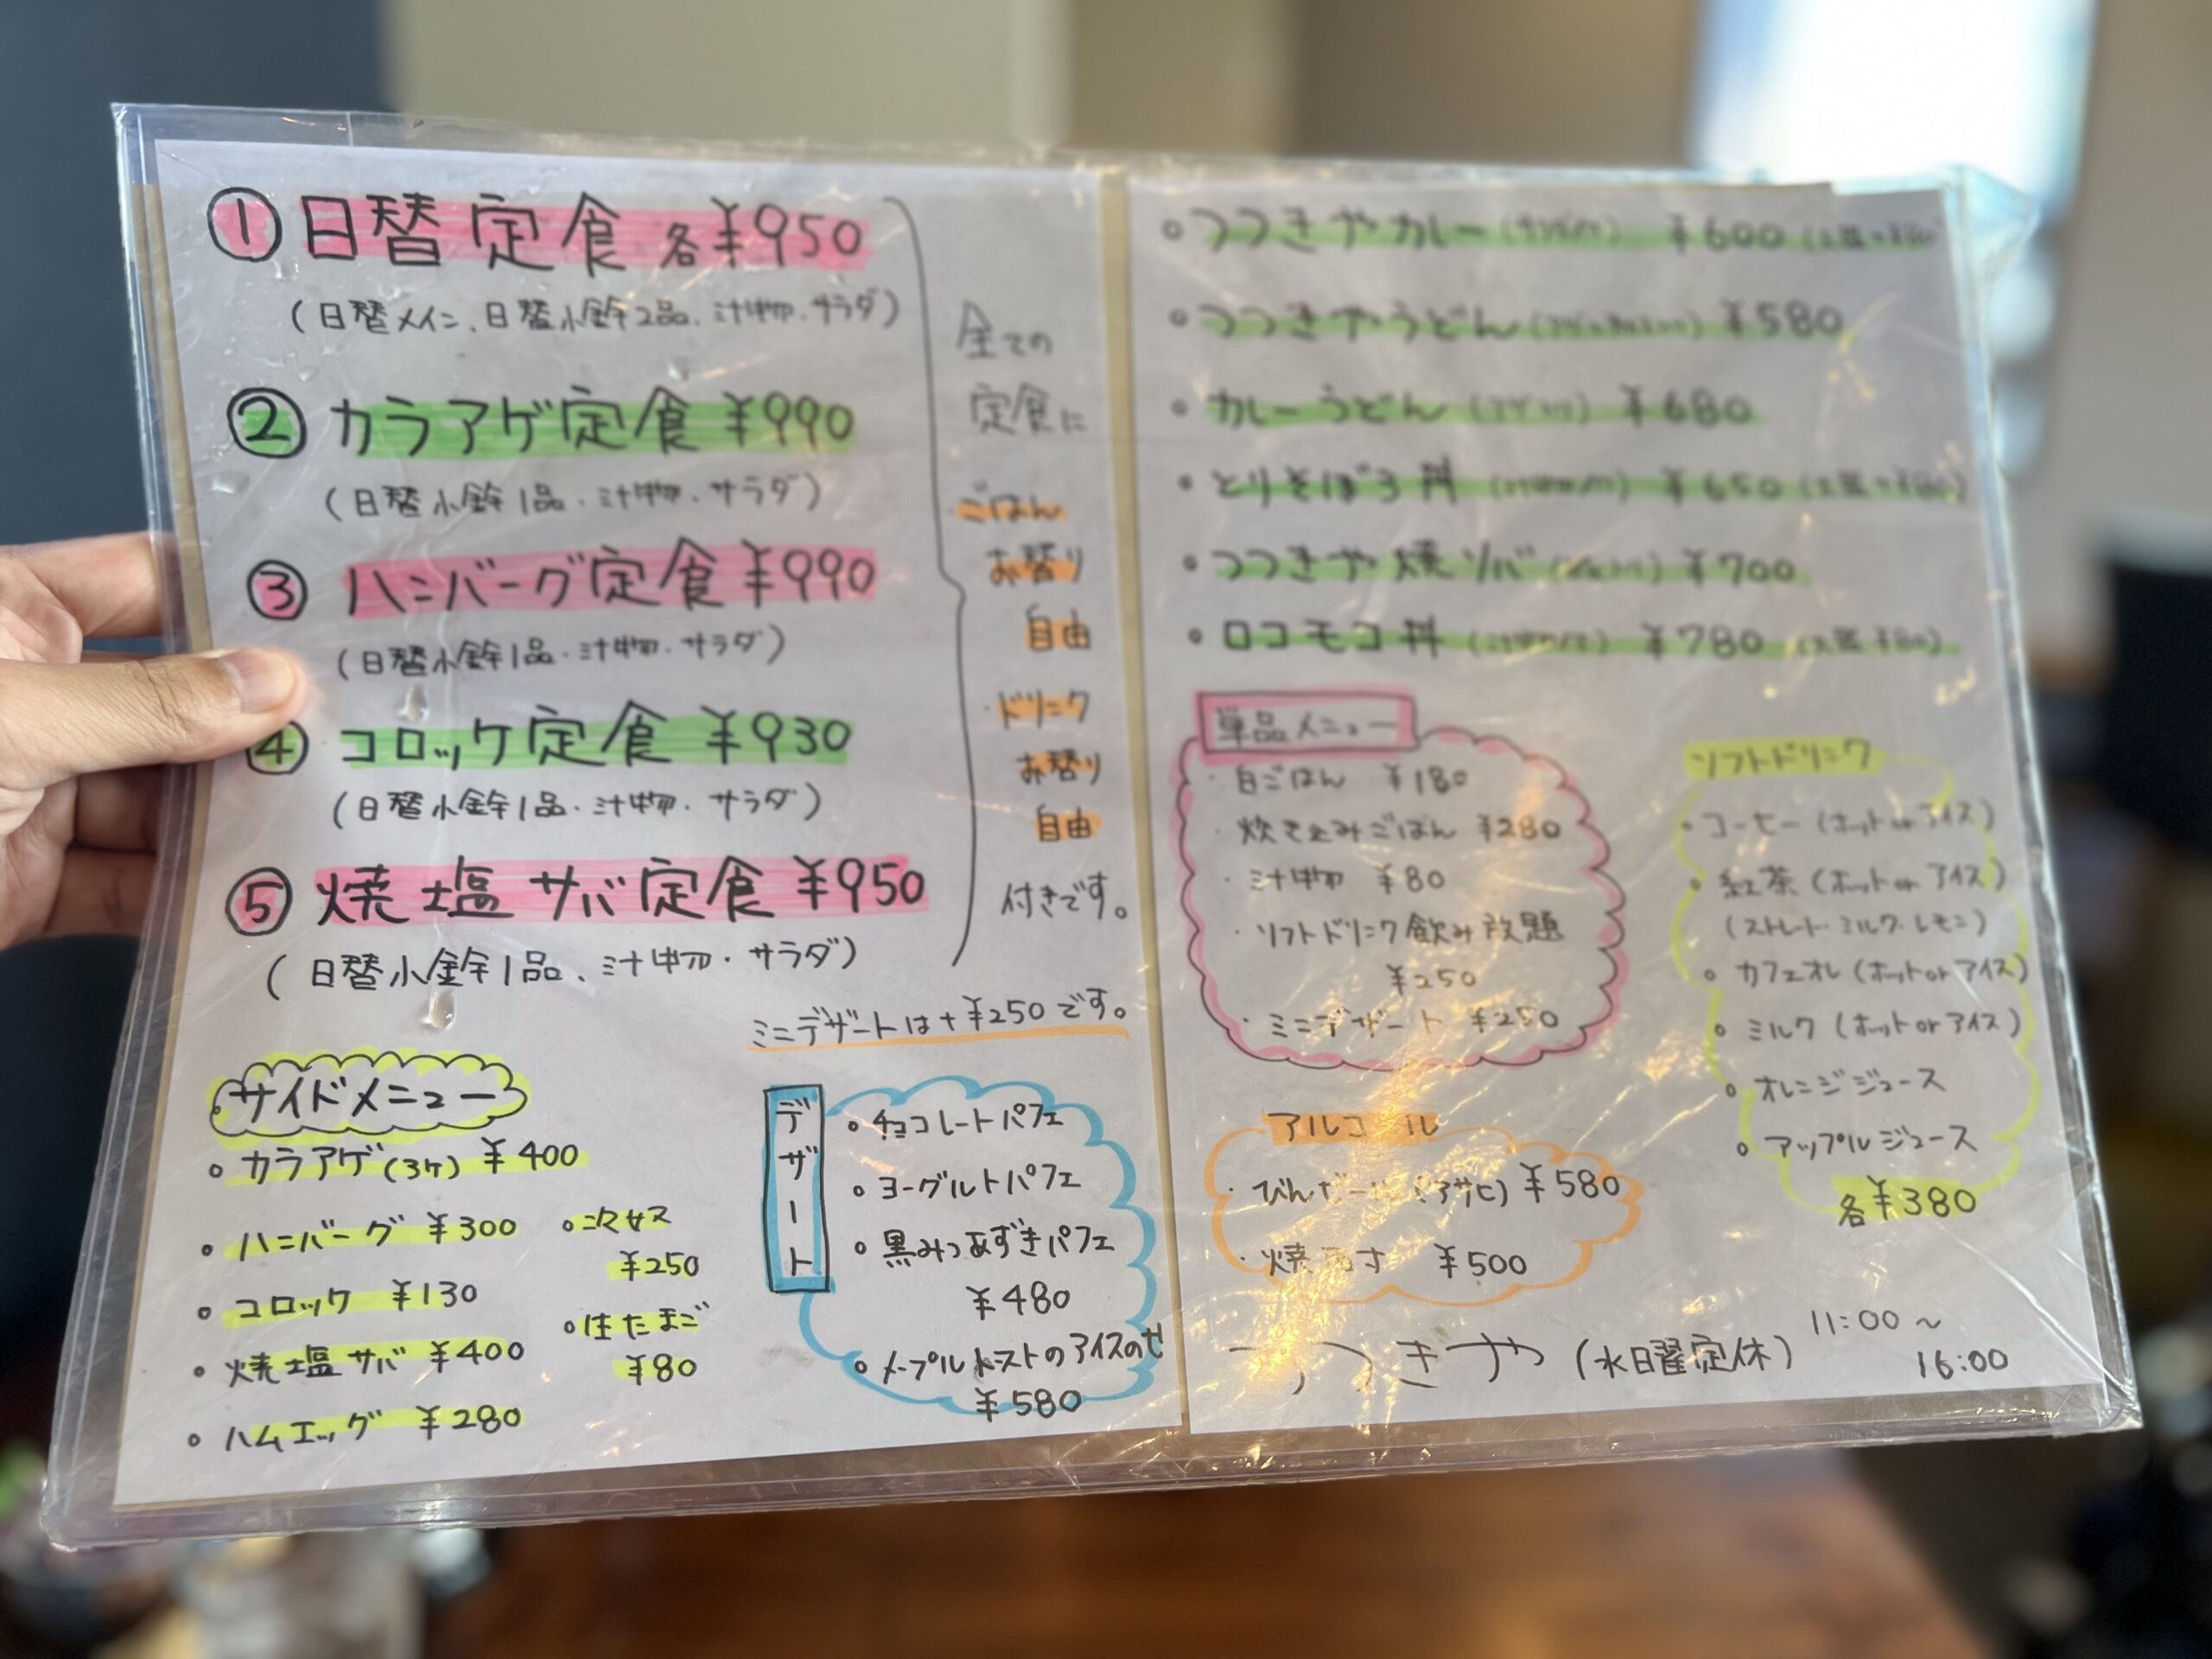 ① 日替定食 各¥950
(日替メイン、日替小鉢2品、汁物・サラダ)
② カラアゲ定食 ¥990
(日替小鉢1品・汁物・サラダ)
③ ハンバーグ定食 ¥990
(日替小鉢1品・汁物・サラダ)
④ コロッケ定食 ¥930
(日替小鉢1品・汁物・サラダ)
⑤ 焼塩サバ定食 ¥950
(日替小鉢1品、汁物・サラダ)
全ての
定食に
ごはん
お替り
自由
・ドリンク
お替り
自由
付きです。
ミニデザートは+¥250です。
サイドメニュー
○カラアゲ(3ケ) ¥400
○ハンバーグ ¥300
○コロッケ ¥130
○焼塩サバ ¥400
○ハムエッグ ¥280
¥250
○生たまご
¥80
デザート
○チョコレートパフェ
○ヨーグルトパフェ
○黒みつあずきパフェ
¥480
○メープルトーストのアイスのせ
¥580
○つつきやカレー ¥600
○つつきやうどん ¥580
○カレーうどん ¥680
○とりそぼろ丼 ¥650
○つつきや焼ソバ ¥700
○ロコモコ丼 ¥780
単品メニュー
・白ごはん ¥180
・炊き込みごはん ¥280
・汁物 ¥80
・ソフトドリンク飲み放題
¥250
・ミニデザート ¥250
ソフトドリンク
○コーヒー(ホット or アイス)
○紅茶(ホット or アイス)
(ストレート・ミルク・レモン)
○カフェオレ(ホット or アイス)
○ミルク(ホット or アイス)
○オレンジジュース
○アップルジュース
各¥380
アルコール
・びんビール(アサヒ) ¥580
・焼酎 ¥500
つつきや (水曜定休) 11:00~
16:00